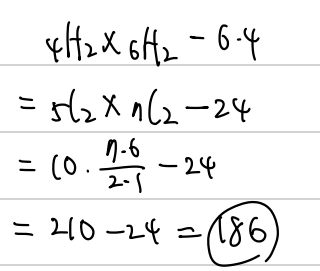 ₄H₂ × ₆H₂ - 6·4
= ₅C₂ × ₇C₂ - 24
= 10 · \frac{7·6}{2·1} - 24
= 210 - 24 = 186